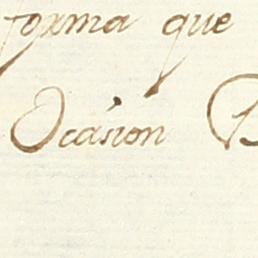 forma que
Ocasion B